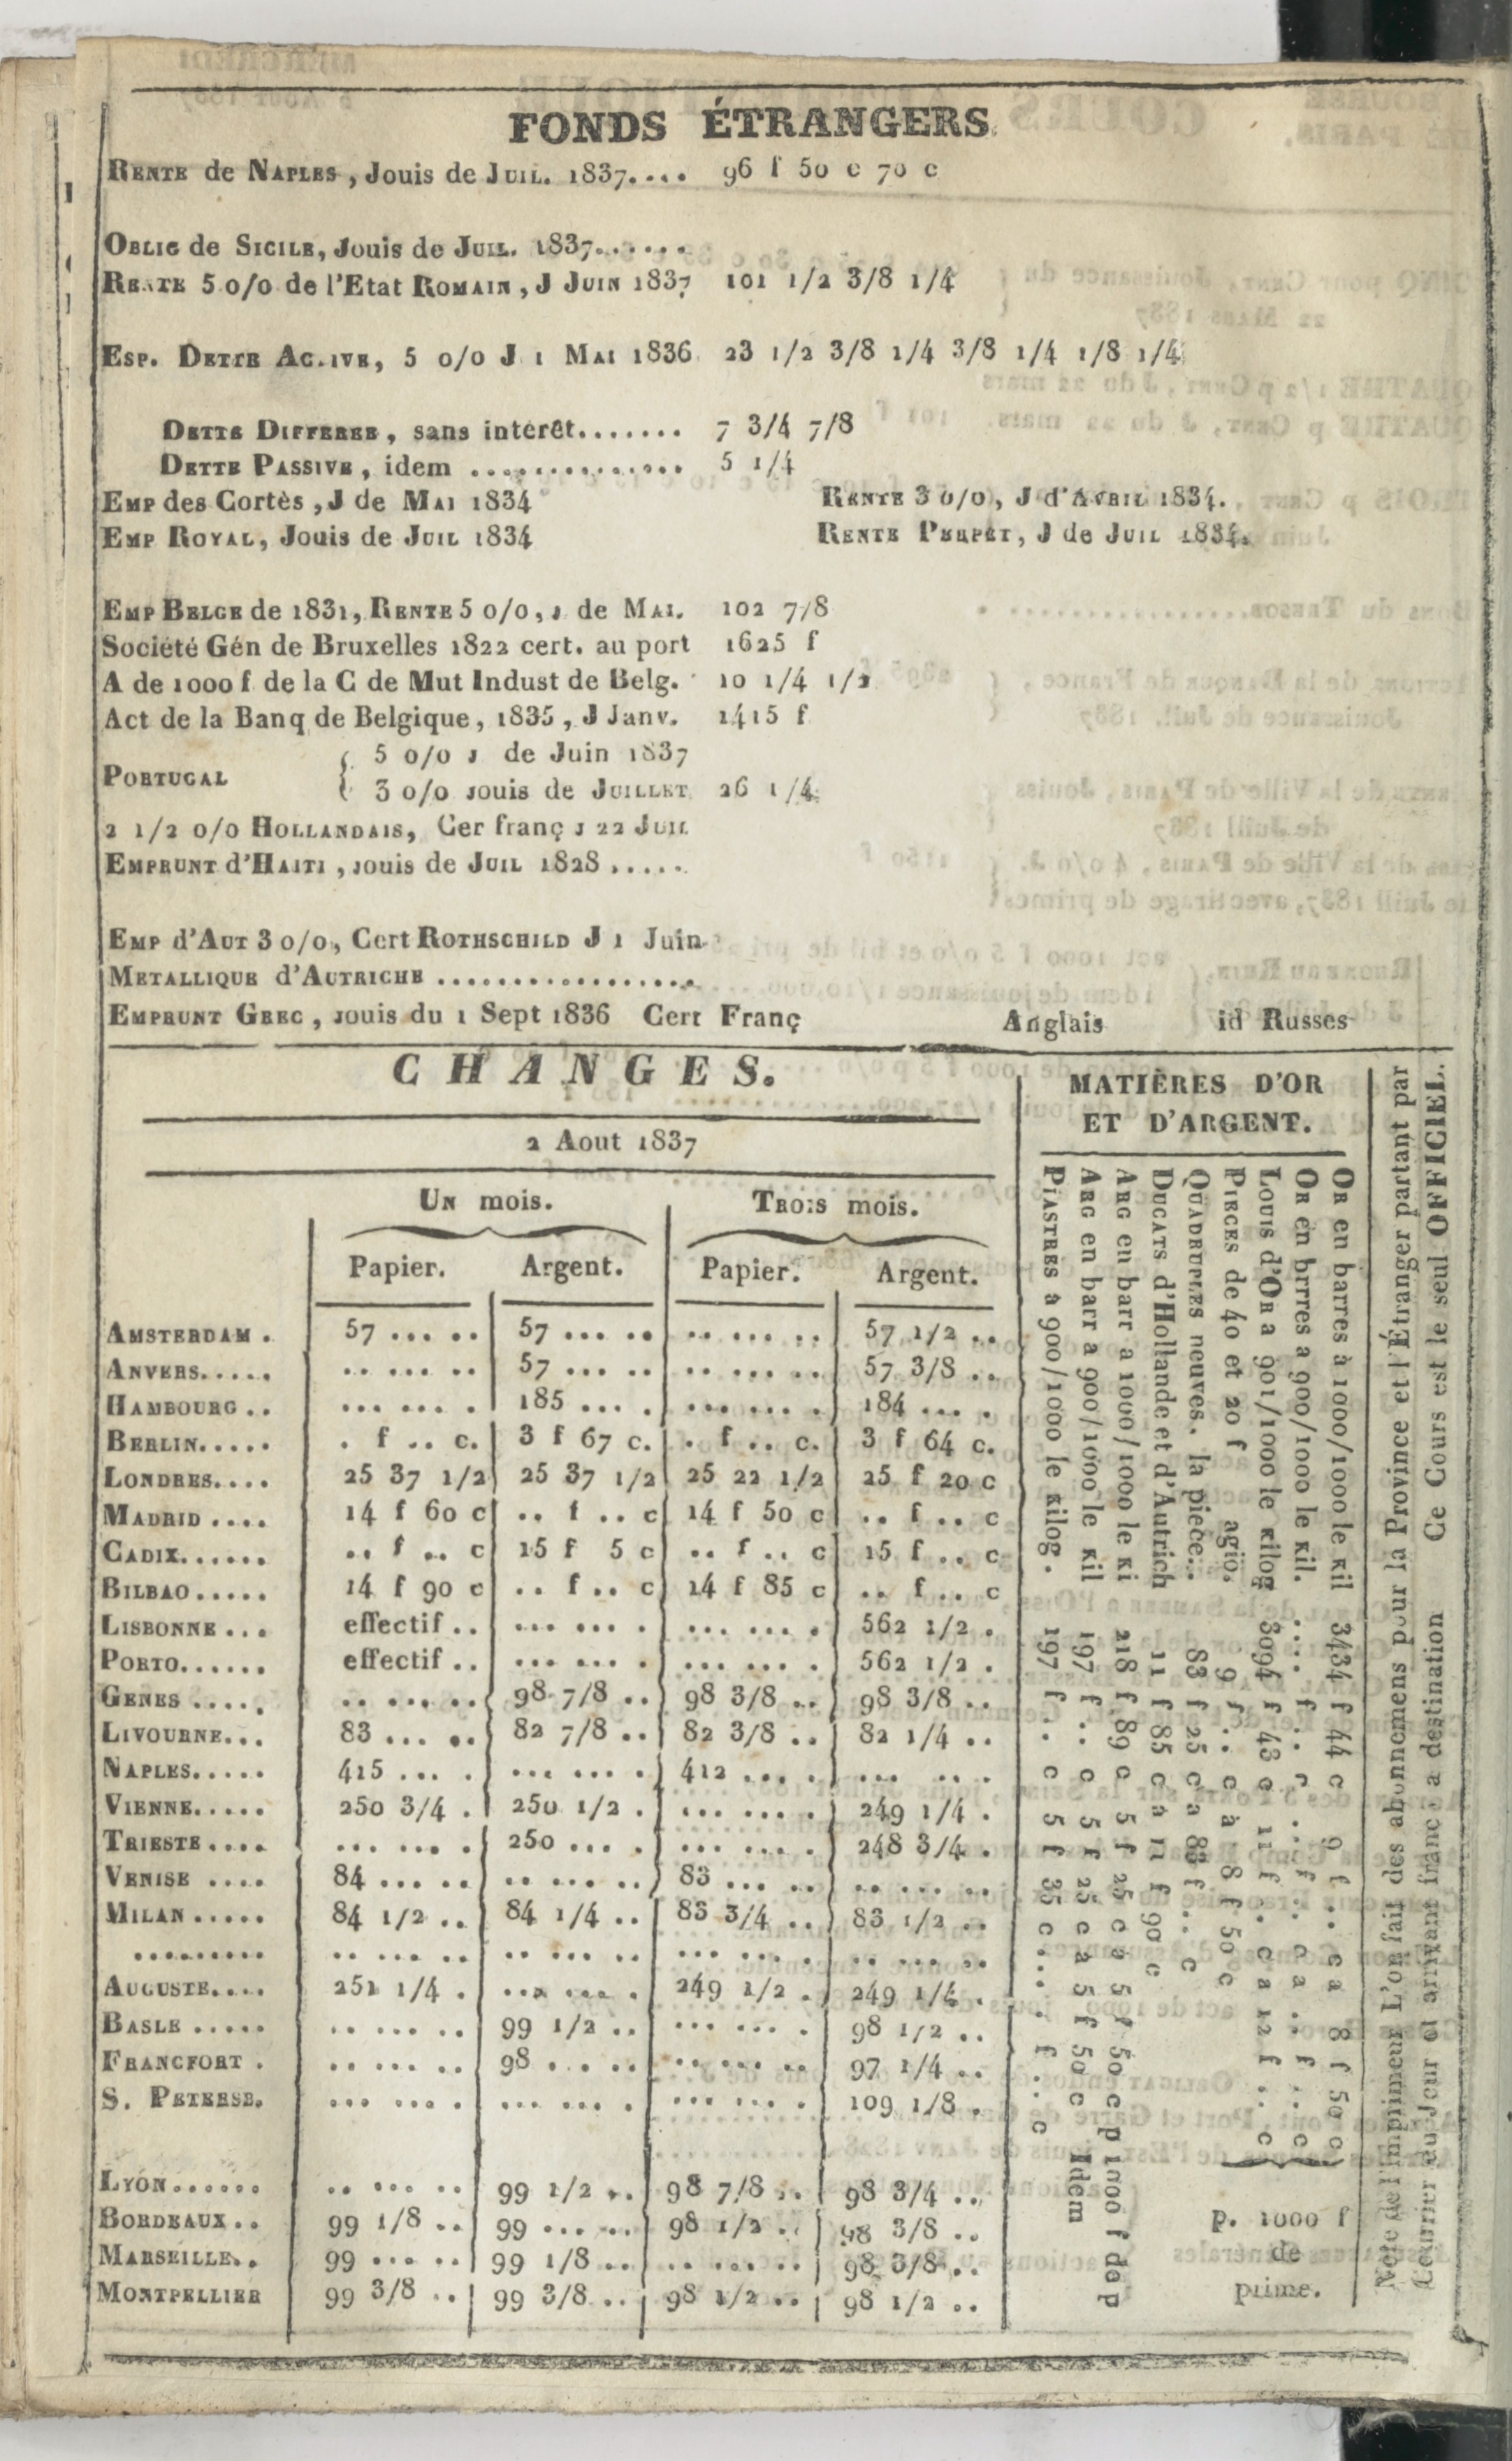 FONDS ÉTRANGERS
RENTE de NAPLES, Jouis de JUIL. 1837.... 96 f 50 c 70 c
OBLIG de SICILE, Jouis de JUIL. 1837......
RENTE 5 0/0 de l'Etat ROMAIN, J JUIN 1837 101 1/2 3/8 1/4
ESP. DETTE ACTIVE, 5 0/0 J 1 MAI 1836 23 1/2 3/8 1/4 3/8 1/4 1/8 1/4
DETTE DIFFEREE, sans intérêt....... 7 3/4 7/8
DETTE PASSIVE, idem .............. 5 1/4
EMP des Cortès, J de MAI 1834 RENTE 3 0/0, J d'AVRIL 1834.
EMP ROYAL, Jouis de JUIL 1834 RENTE PERPÉT, J de JUIL 1834.
EMP BELGE de 1831, RENTE 5 0/0, J de MAI. 102 7/8
Société Gén de Bruxelles 1822 cert. au port 1625 f
A de 1000 f de la C de Mut Indust de Belg. 10 1/4 1/2
Act de la Banq de Belgique, 1835, J Janv. 1415 f
PORTUGAL { 5 0/0 J de Juin 1837
3 0/0 Jouis de JUILLET 26 1/4
2 1/2 0/0 HOLLANDAIS, Cer franç J 22 JUIL
EMPRUNT d'HAITI, Jouis de JUIL 1828 .....
EMP d'AUT 3 0/0, Cert ROTHSCHILD J 1 Juin
METALLIQUE d'AUTRICHE .................
EMPRUNT GREC, Jouis du 1 Sept 1836 Cert Franç Anglais id Russes
CHANGES.
2 Aout 1837
UN mois. TROIS mois.
Papier. Argent. Papier. Argent.
AMSTERDAM . 57 ... .. 57 ... .. .. ... .. 57 1/2 ..
ANVERS..... .. ... .. 57 ... .. .. ... .. 57 3/8 ..
HAMBOURG .. ... ... . 185 ... . ... ... . 184 ... .
BERLIN..... . f .. c. 3 f 67 c. . f .. c. 3 f 64 c.
LONDRES.... 25 37 1/2 25 37 1/2 25 22 1/2 25 f 20 c
MADRID .... 14 f 60 c .. f .. c 14 f 50 c .. f .. c
CADIX...... .. f .. c 15 f 5 c .. f .. c 15 f .. c
BILBAO ..... 14 f 90 c .. f .. c 14 f 85 c .. f .. c
LISBONNE ... effectif .. ... ... . ... ... . 562 1/2 .
PORTO...... effectif .. ... ... . ... ... . 562 1/2 .
GENES ..... .. ... .. 98 7/8 .. 98 3/8 .. 98 3/8 ..
LIVOURNE... 83 ... .. 82 7/8 .. 82 3/8 .. 82 1/4 ..
NAPLES..... 415 ... . ... ... . 412 ... . ... ... .
VIENNE..... 250 3/4 . 250 1/2 . ... ... . 249 1/4 .
TRIESTE .... ... ... . 250 ... . ... ... . 248 3/4 .
VENISE .... 84 ... .. .. ... .. 83 ... .. .. ... ..
MILAN ..... 84 1/2 .. 84 1/4 .. 83 3/4 .. 83 1/2 ..
......... .. ... .. .. ... .. ... ... . .. ... ..
AUGUSTE.... 251 1/4 . ... ... . 249 1/2 . 249 1/4 .
BASLE ..... .. ... .. 99 1/2 .. ... ... . 98 1/2 ..
FRANCFORT . .. ... .. 98 ... .. .. ... .. 97 1/4 ..
S. PETERSB. ... ... . ... ... . ... ... . 109 1/8 .
LYON...... .. ... .. 99 1/2 .. 98 7/8 .. 98 3/4 ..
BORDEAUX .. 99 1/8 .. 99 ... .. 98 1/2 .. 98 3/8 ..
MARSEILLE.. 99 ... .. 99 1/8 .. .. ... .. 98 3/8 ..
MONTPELLIER 99 3/8 .. 99 3/8 .. 98 1/2 .. 98 1/2 ..
MATIÈRES D'OR
ET D'ARGENT.
OR en barres à 1000/1000 le Kil 3434 f 44 c 9 f .. c a 8 f 50 c
OR en brrres a 900/1000 le Kil. .... f .. c .. f .. c a .. f .. c
LOUIS d'OR a 901/1000 le Kilog 3094 f 43 c 11 f .. c a 12 f .. c
PIECES de 40 et 20 f agio. 9 f .. c à 8 f 50 c
QUADRUPLES neuves. la pièce... 83 f 25 c a 83 f .. c
DUCATS d'Hollande et d'Autrich 11 f 85 c a 11 f 90 c
ARG en barr a 1000/1000 le Ki 218 f 89 c 5 f 25 c a 5 f 50 c p 1000 f de p
ARG en barr a 900/1000 le Kil 197 f .. c 5 f 25 c a 5 f 50 c Idem
PIASTRES à 900/1000 le Kilog. 197 f .. c 5 f 35 c ... f .. c
p. 1000 f
de
prime.
Note de l'Imprimeur L'on fait des abonnemens pour la Province et l'Étranger partant par
Courrier du Jour et arrivant franc à a destination Ce Cours est le seul OFFICIEL.